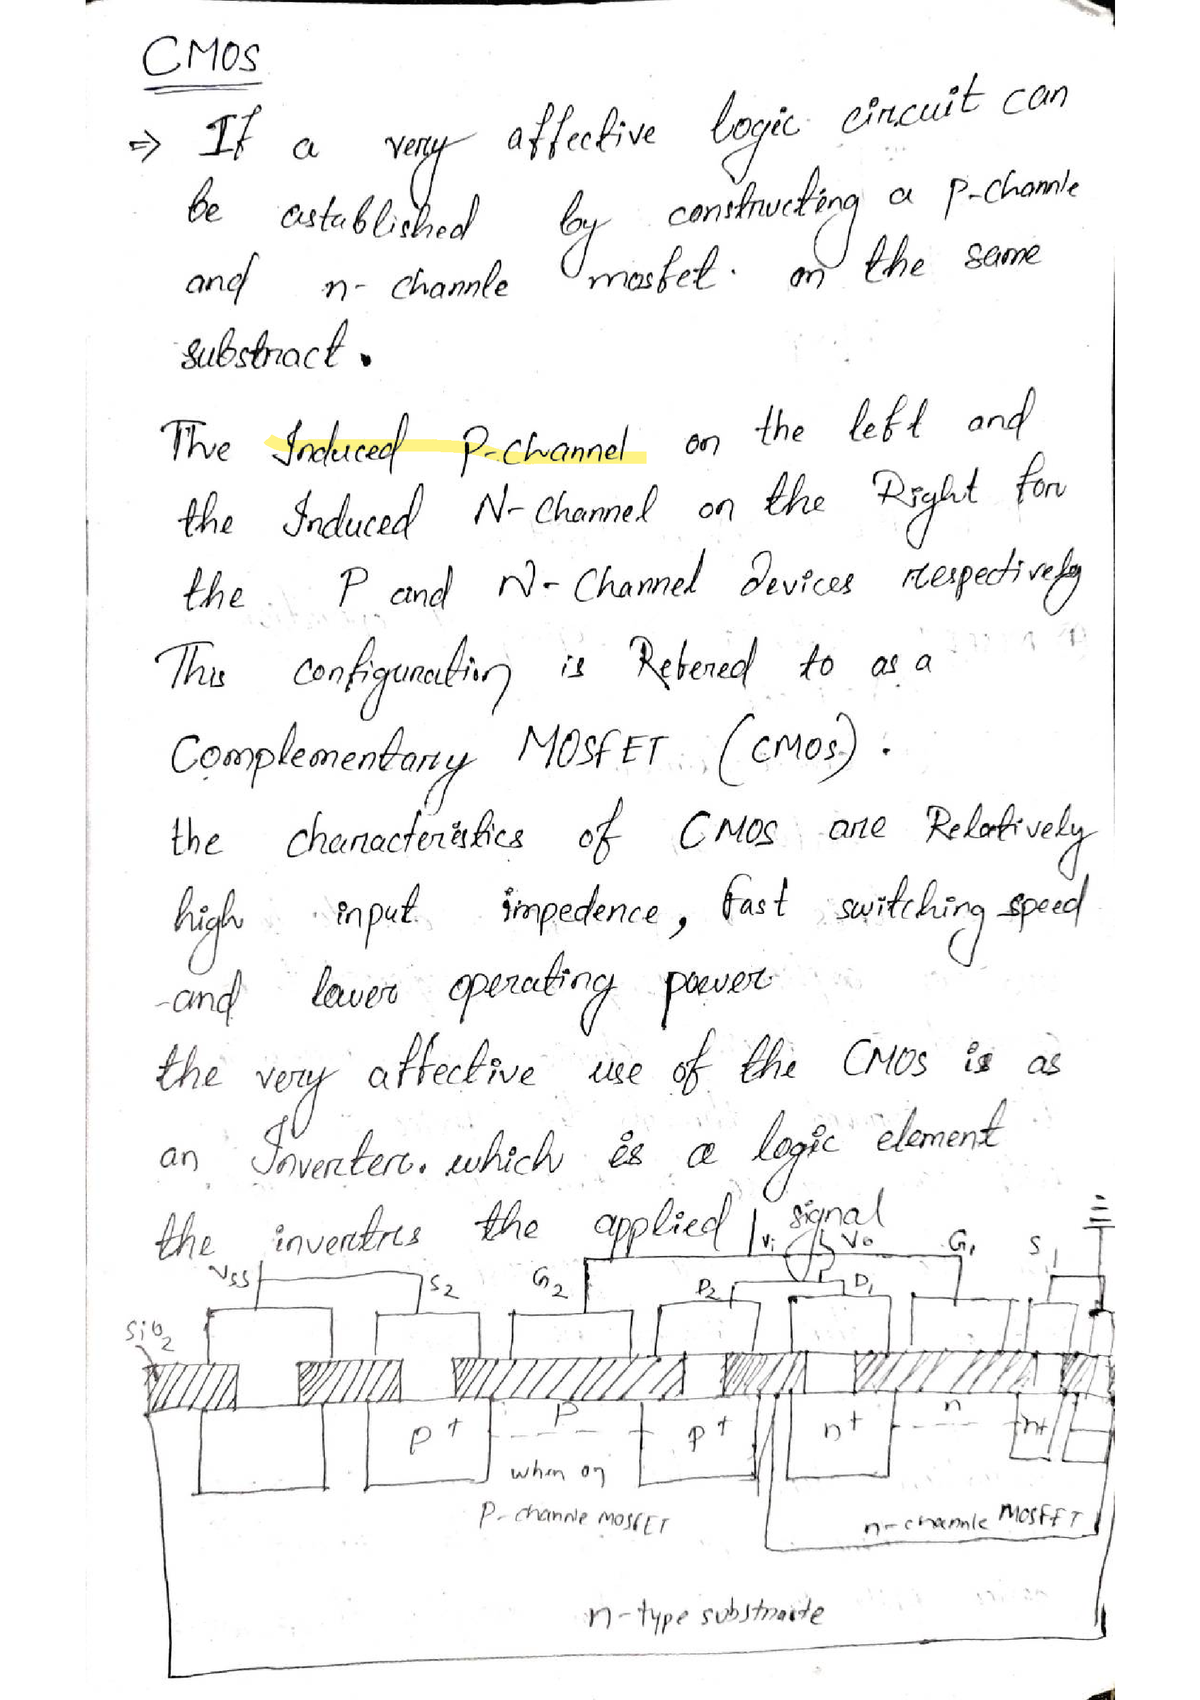 CMOS
⇒ If a very affective logic circuit can
be astablished by constructing a p-channle
and n-channle mosfet. on the same
substract.
The Induced P-channel on the left and
the Induced N-Channel on the Right for
the P and N-Channel devices respectively
This configuration is Refered to as a
Complementary MOSFET (CMOS).
the characteristics of CMOS are Relatively
high input impedence, fast switching speed
and lower operating power
the very affective use of the CMOS is as
an Inverter. which is a logic element
the invertrs the applied signal
Vi Vo
VSS S2 G2 D2 D1 G1 S1
SiO2
p+ P p+ n+ n n+
when on
p-channle MOSFET
n-channle MOSFET
n-type substracte